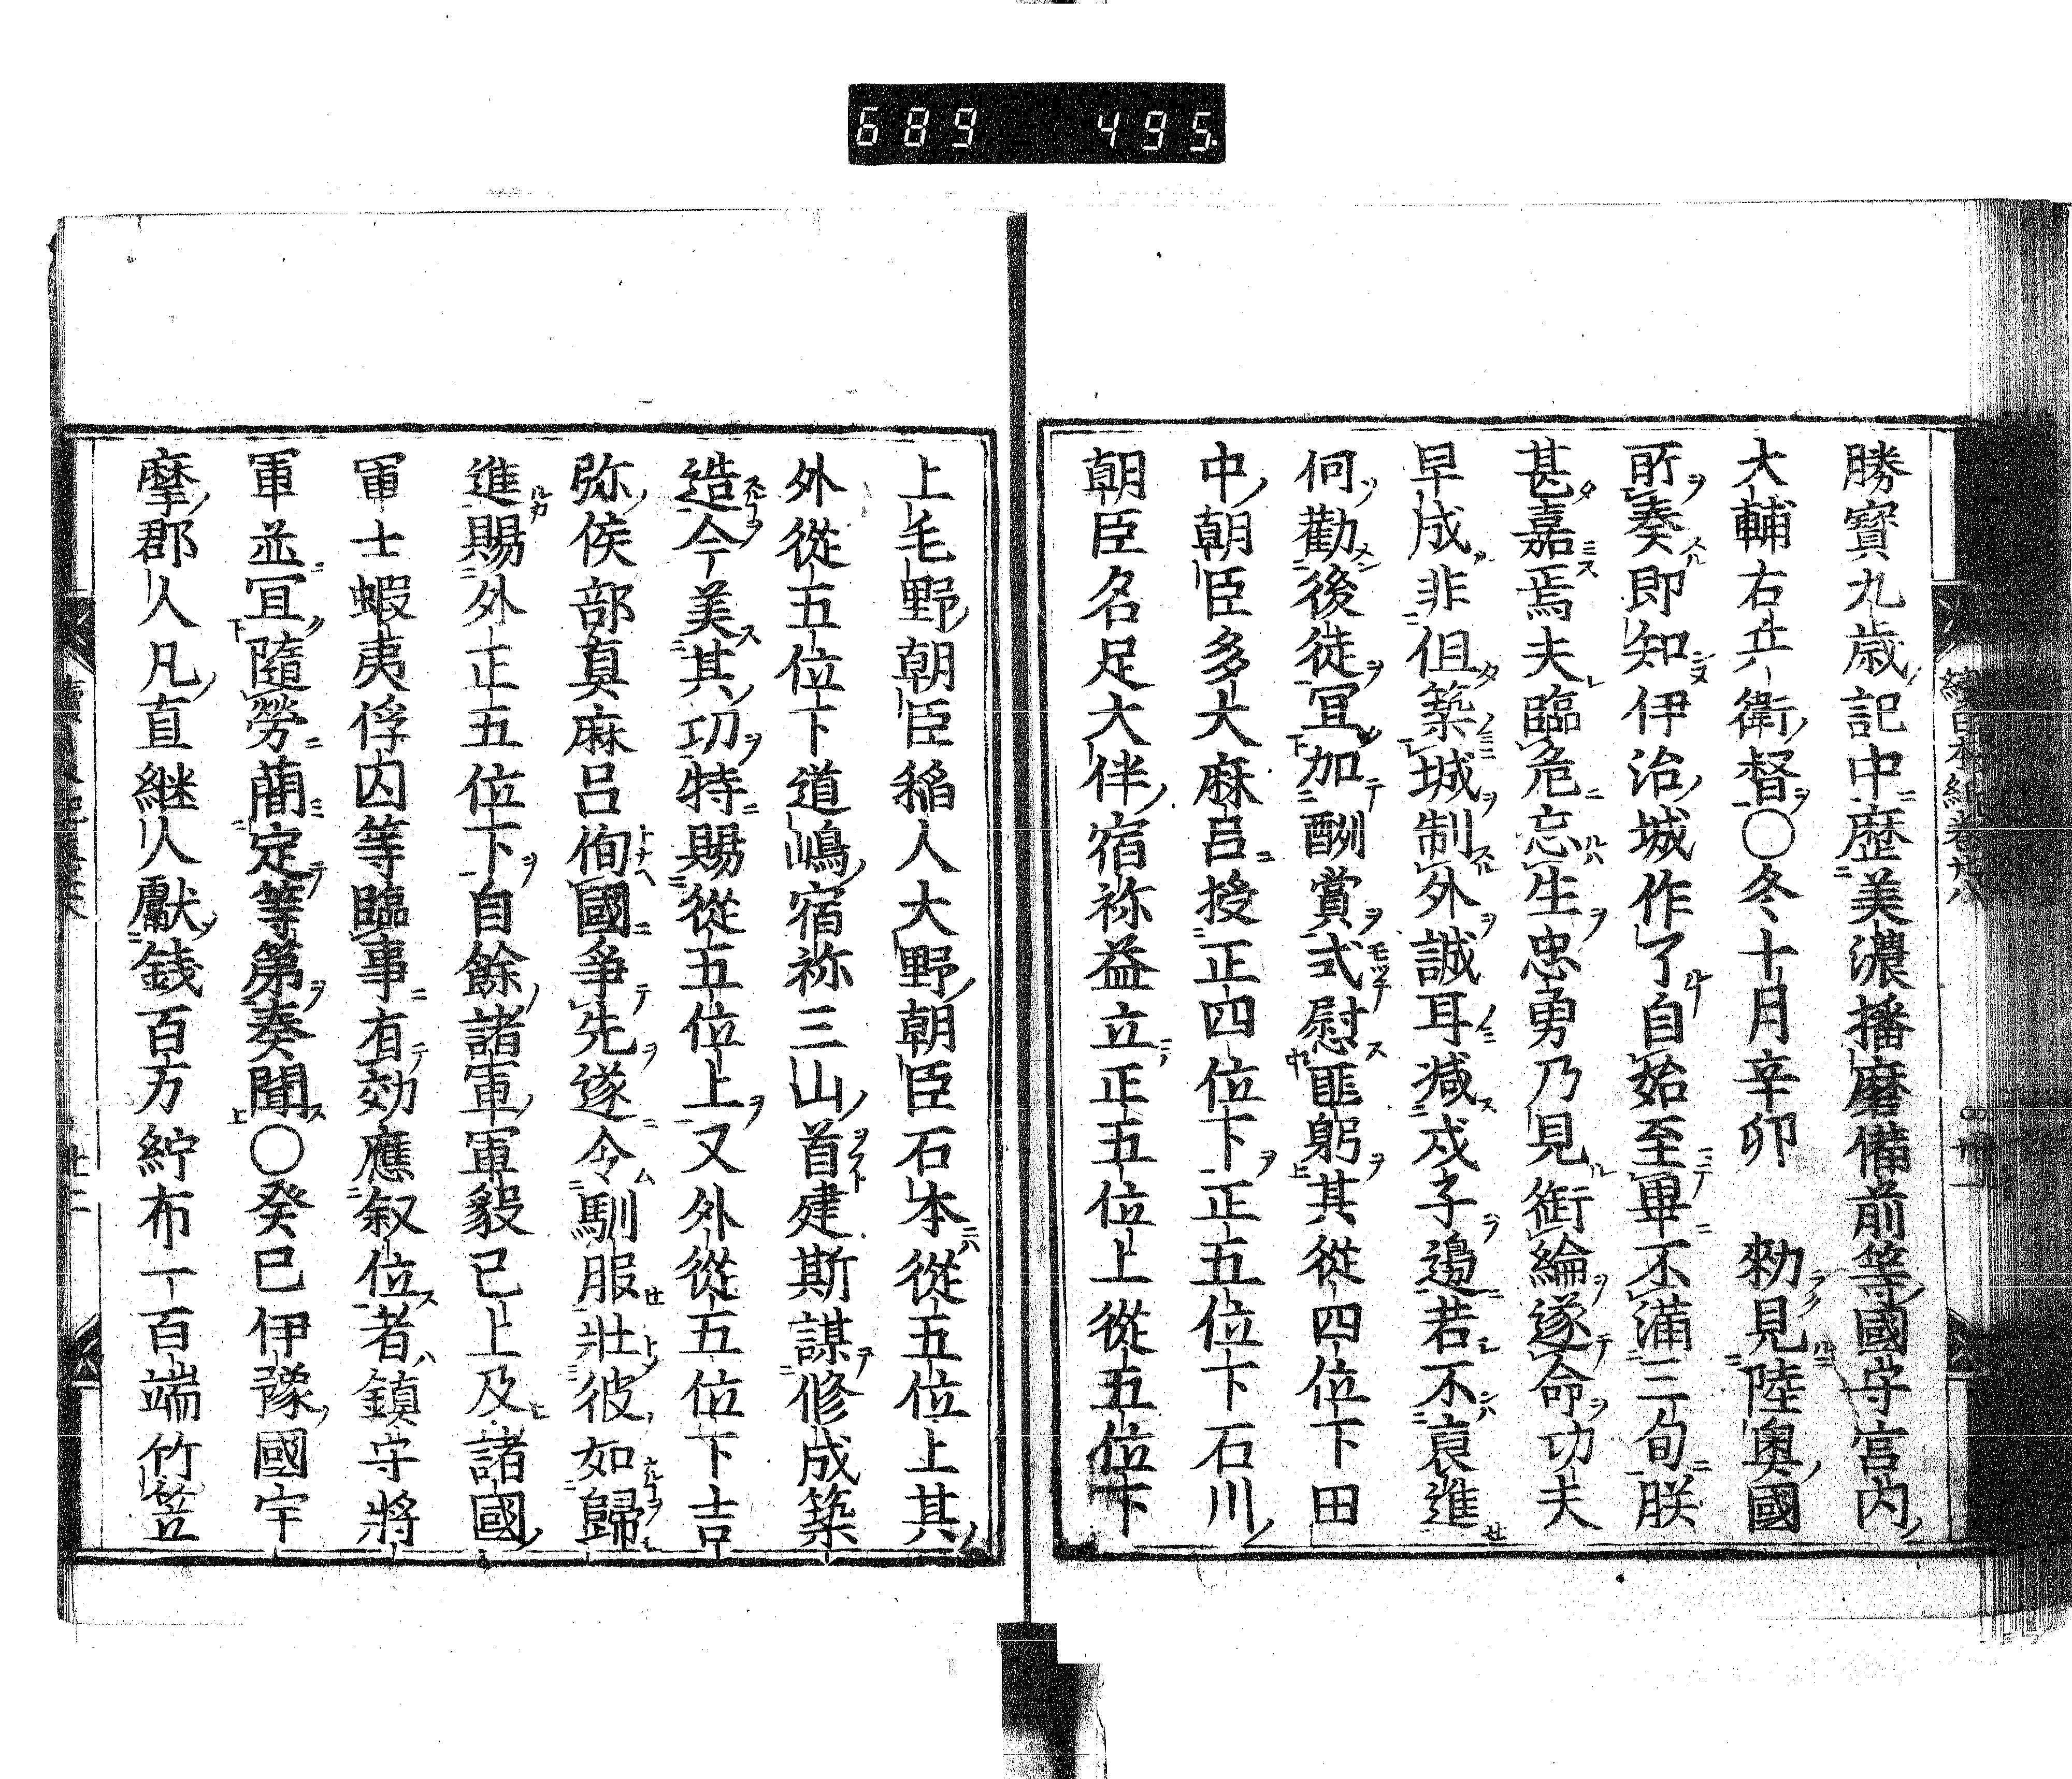 689 495
續日本紀卷廿八
勝寶九歳記中歴美濃播磨備前等國守宮内
大輔右兵衛督○冬十月辛卯 勅見陸奥國
所奏即知伊治城作了自始至畢不滿三旬朕
甚嘉焉夫臨危忘生忠勇乃見銜綸遂命功夫
早成非但築城制外誠可減戍安邊若不裒進
何勸後徒冝加酬賞式慰匪躬其從四位下田
中朝臣多大麻呂授正四位下正五位下石川
朝臣名足大伴宿祢益立正五位上從五位下
上毛野朝臣稲人大野朝臣石本從五位上其
外從五位下道嶋宿祢三山首建斯謀修成築
造今美其功特賜從五位上又外從五位下吉
弥侯部真麻呂徇國爭先遂令馴服壯彼如歸
進賜外正五位下自餘諸軍軍毅已上及諸國
軍士蝦夷俘囚等臨事有効應叙位者鎮守將
軍並冝隨勞簡定等第奏聞○癸巳伊豫國宇
摩郡人凡直継人獻錢百万紵布一百端竹笠